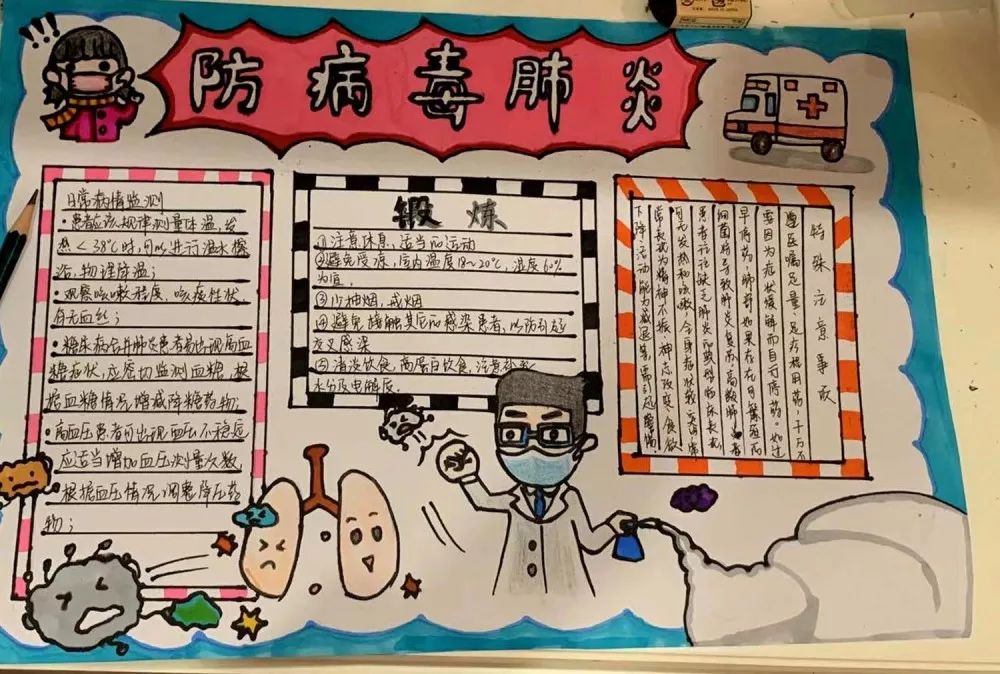 防病毒肺炎
日常病情监测
·患者应该规律测量体温,发
热<38℃时,可以进行温水擦
浴,物理降温;
·观察咳嗽程度、咳痰性状
有无血丝;
·糖尿病合并肺炎患者易出现高血
糖症状,应密切监测血糖,根
据血糖情况增减降糖药物;
·高血压患者可出现血压不稳定
应适当增加血压测量次数,
·根据血压情况,调整降压药
物;
锻炼
①注意休息,适当的运动
②避免受凉,室内温度18~20℃,湿度60%
为宜.
③少抽烟,戒烟
④避免接触其它的感染患者,以防引起
交叉感染
⑤清淡饮食,高蛋白饮食,注意补充
水分及电解质.
特殊注意事项
遵医嘱足量,足疗程用药,千万不
要因为症状缓解而自行停药。如过
早停药,肺部如果存在
细菌将导致肺炎复发,高龄肺炎者
患者往往缺乏肺炎的典型临床表现
可无发热和咳嗽,全身症状较突出,常
常表现为精神不振,神志改变,食欲
下降,活动能力减退等,需引起警惕.